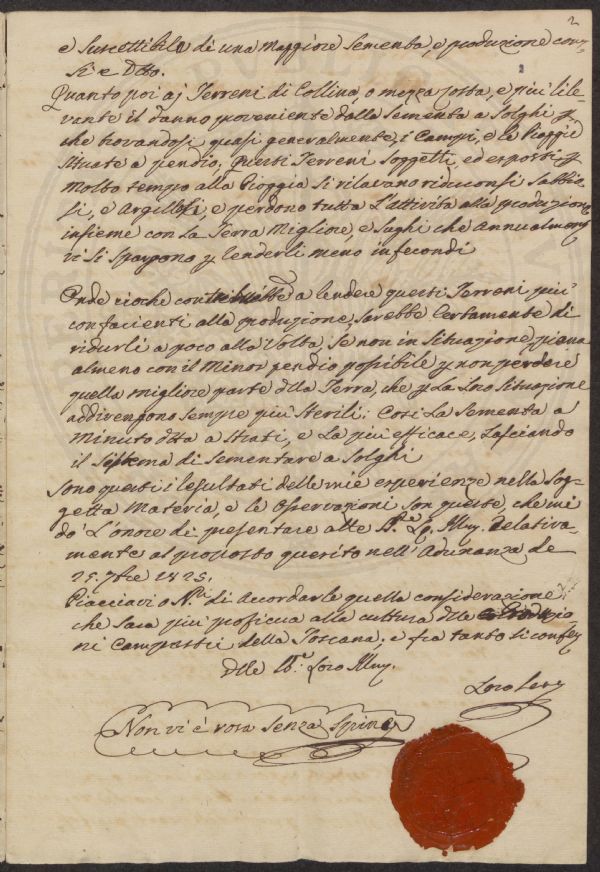 2
e Suscettibile di una Maggiore Sementa, e produzione come
si e Detto.
Quanto poi a i Terreni di Collina, o mezza costa, e più rile-
vante il danno proveniente dalla Sementa a Solghi p
che trovandosi quasi generalmente, i Campi, e le Piaggie
situate a pendio, Questi Terreni Soggetti, ed esposti p
Molto tempo alla Pioggia si rilavano riduconsi Sabbio-
si, e Argillosi, e perdono tutta L'attività alla produzione
insieme con La Terra Migliore, e Sughi che annualmen
vi si Spargono p renderli meno infecondi
Onde cioche contribuirebbe a rendere questi Terreni più
confacienti alla produzione, sarebbe Certamente di
ridurli a poco alla Volta, se non in Situazione piana
almeno con il Minor pendio possibile p non perdere
quella migliore parte della Terra, che p La Loro Situazione
addivengono Sempre più Sterili: Così La Sementa a
Minuto detta a Strati, e La più efficace, Lasciando
il Sistema di Sementare a Solghi
Sono questi i resultati delle mie esperienze nella Sog-
getta Materia, e le Osservazioni son queste, che mi
do' L'onore di presentare alle Loro Relativa-
mente al proposto quesito nell'Adunanza de
25. 7bre 1825.
Piacciavi o di Accordarle quella considerazione
che sarà più proficua alla cultura delle Produzio
ni Campestri della Toscana; e fra tanto si confessa
Delle Loro Illme.
Loro Serv
Non vi è rosa Senza Spine